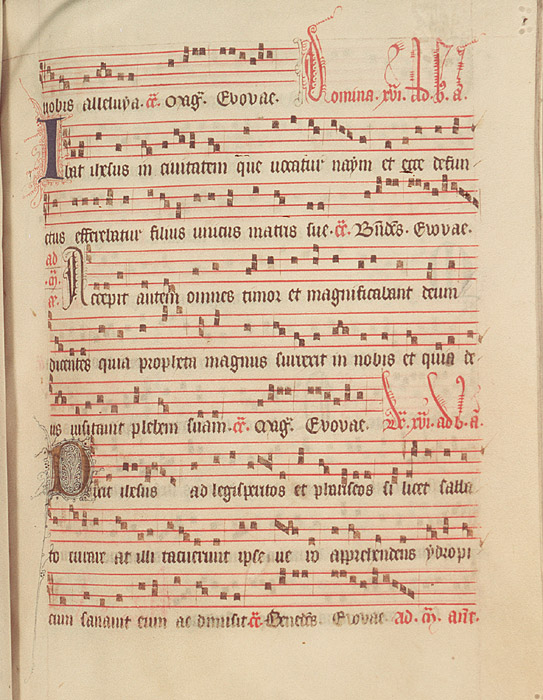 nobis alleluya. Mag͞. Evovae. Domina. xvi. ad. b. a.
Ibat ihesus in civitatem que vocatur naym et ecce defun
ctus efferebatur filius unicus matris sue. Evovae.
ad
m̄.
a.
Accepit autem omnes timor et magnificabant deum
dicentes quia propheta magnus surrexit in nobis et quia de
us visitavit plebem suam. Mag͞. Evovae. xvi. ad b. a.
Dixit ihesus ad legisperitos et phariseos si licet sabba
to curare at illi tacuerunt ipse ve ro apprehendens ydropi
cum sanavit eum ac dimisit. Evovae. ad. m̄. an̄t.